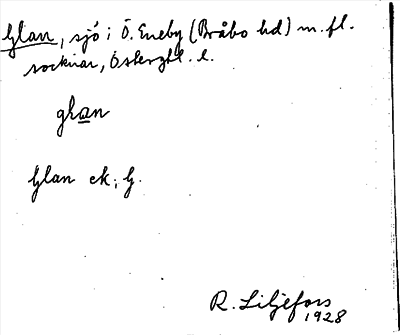 Glan, sjö i Ö. Eneby (Bråbo hd) m. fl.
socknar, Östergtl. l.
glan
Glan ek; G.
R. Liljefors
1928